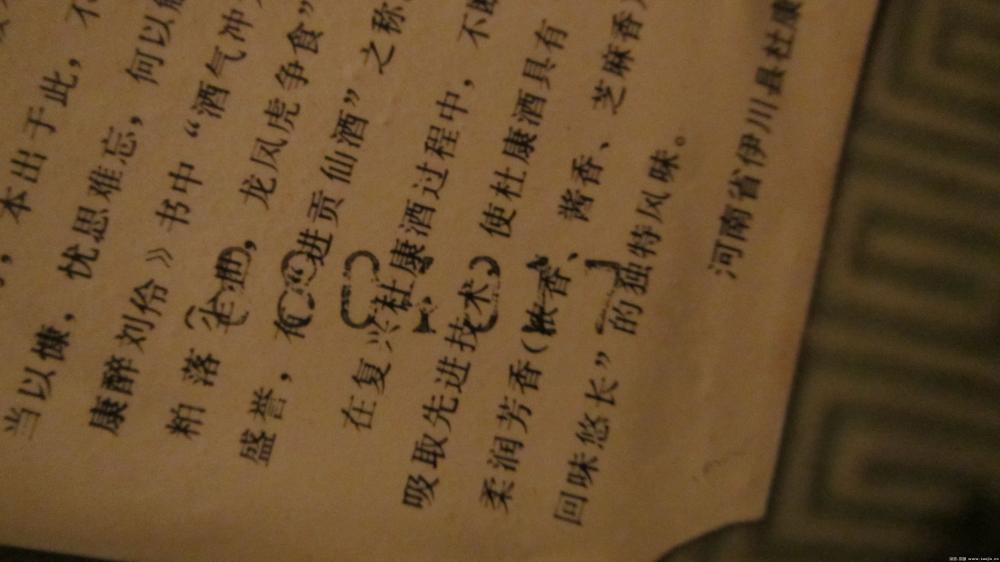 本出于此，不
当以慷，忧思难忘，何以
康醉刘伶》书中“酒气冲
粕落 ，龙凤虎争食”
盛誉，有“进贡仙酒”之称
在复兴杜康酒过程中，不断
吸取先进技术，使杜康酒具有
柔润芳香（浓香、酱香、芝麻香）
回味悠长”的独特风味。
河南省伊川县杜康